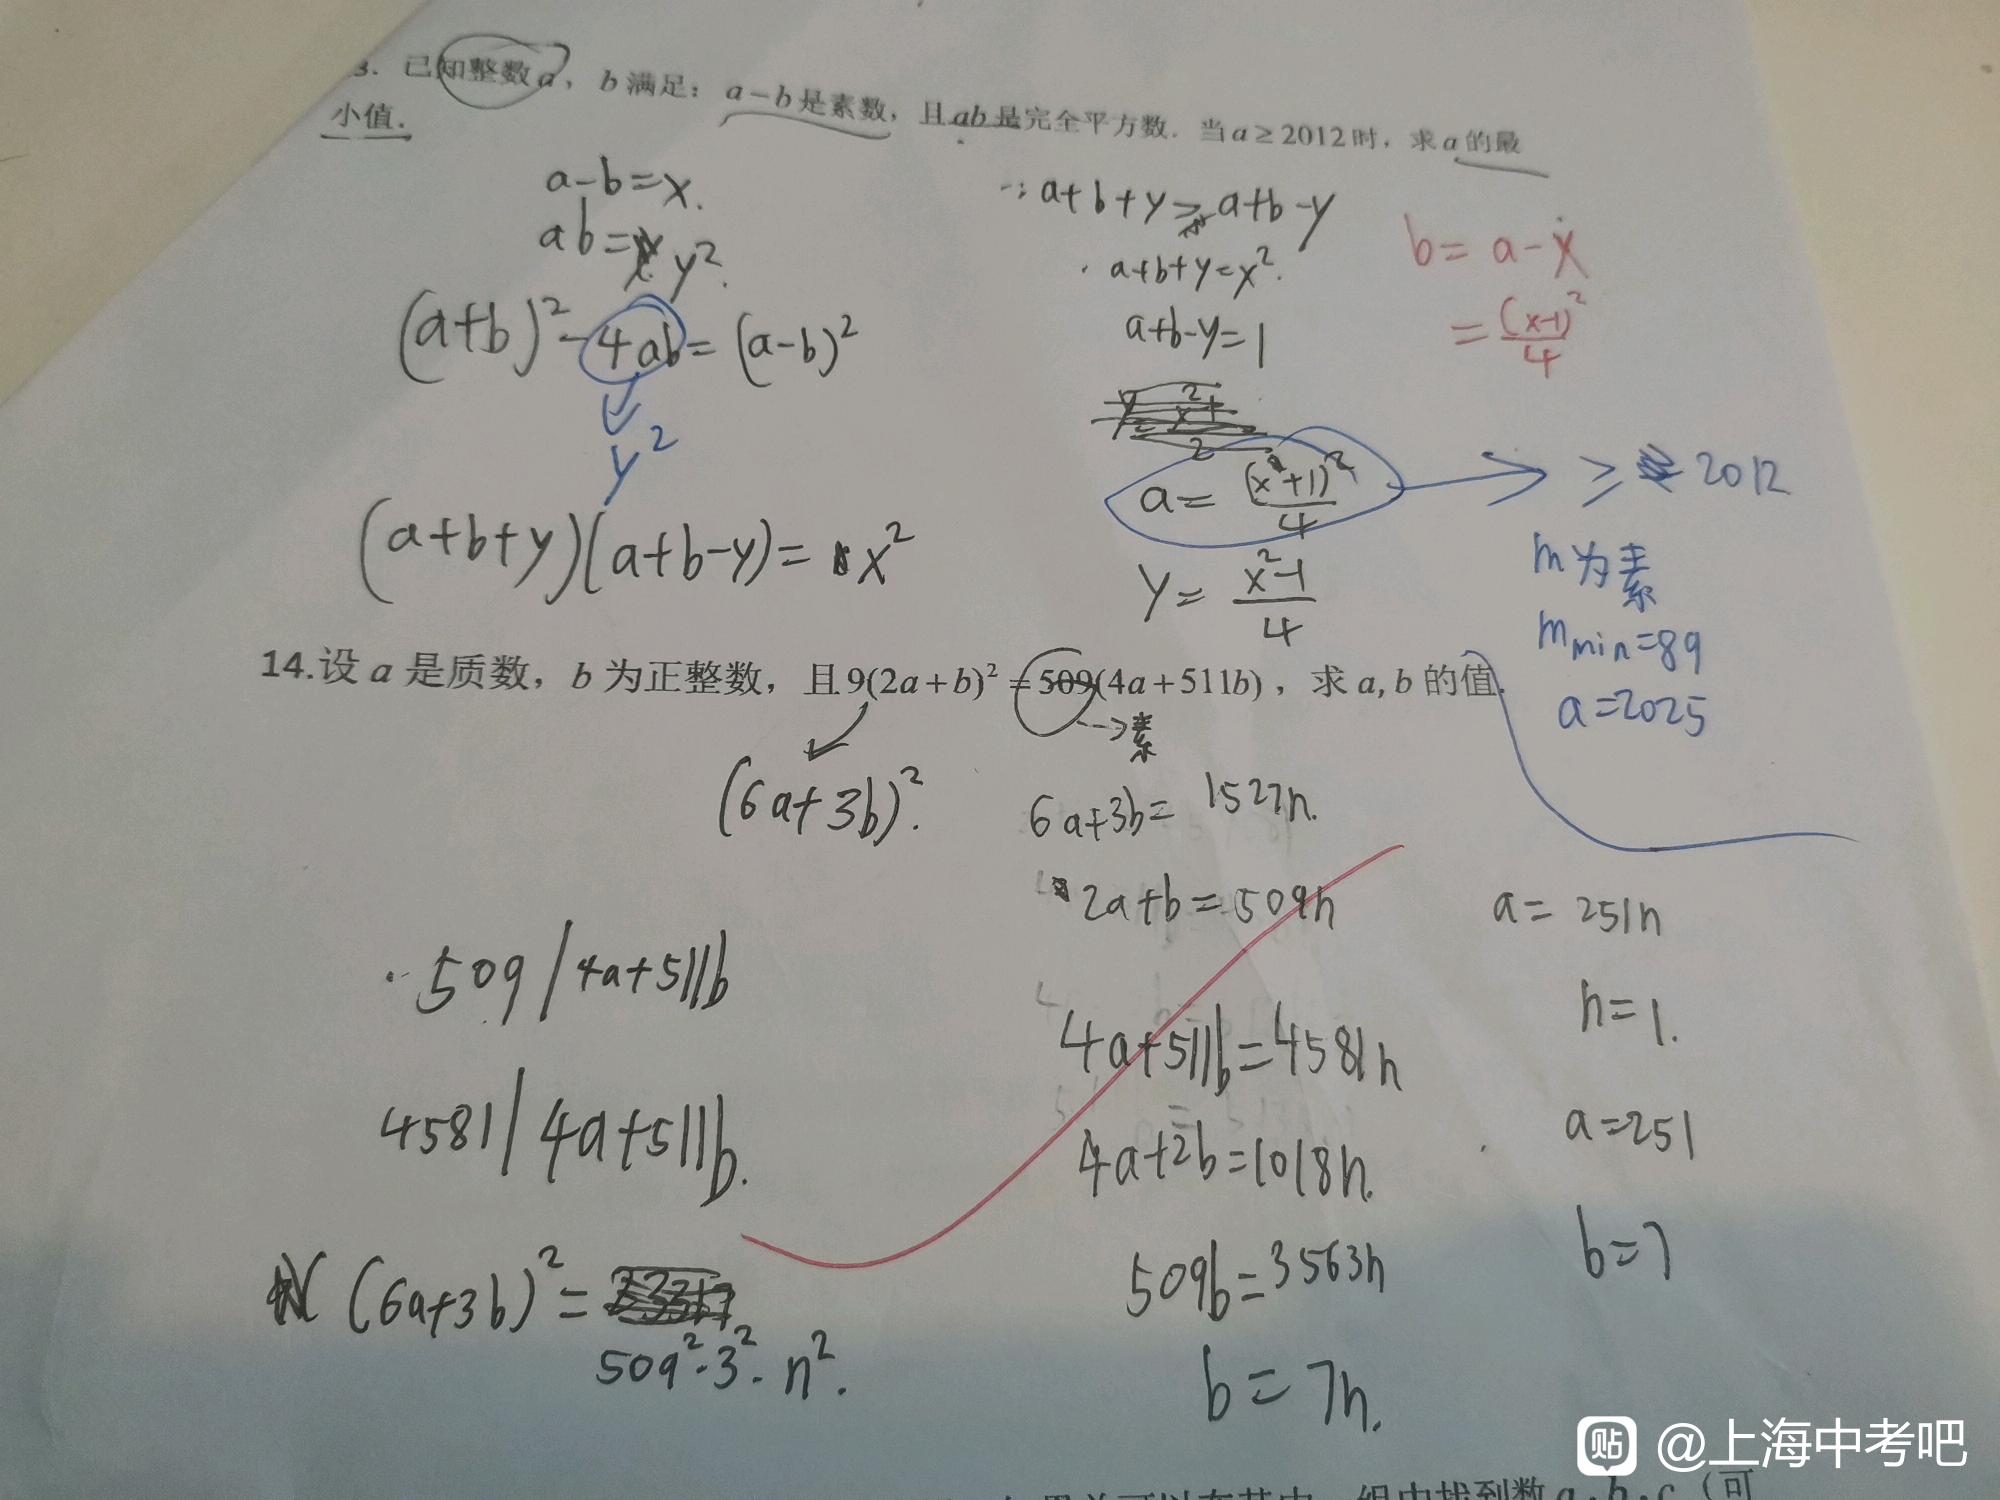 3. 已知整数a，b满足：a-b是素数，且ab是完全平方数. 当a≥2012时，求a的最
小值.
a-b=x.
ab=y².
(a+b)²-4ab=(a-b)²
y²
(a+b+y)(a+b-y)=x²
∵a+b+y≥a+b-y
a+b+y=x².
a+b-y=1
a=(x²+1)²/4
y=x²-1/4
b=a-x
=(x-1)²/4
≥2012
m为素
m min=89
a=2025
14.设a是质数，b为正整数，且9(2a+b)²=509(4a+511b)，求a,b的值.
素
(6a+3b)².
509/4a+511b
4581/4a+511b.
(6a+3b)²=
509²·3²·n².
6a+3b=1527n.
2a+b=509n
4a+511b=4581n
4a+2b=1018n.
509b=3563n
b=7n.
a=251n
n=1.
a=251
b=7
贴 @上海中考吧